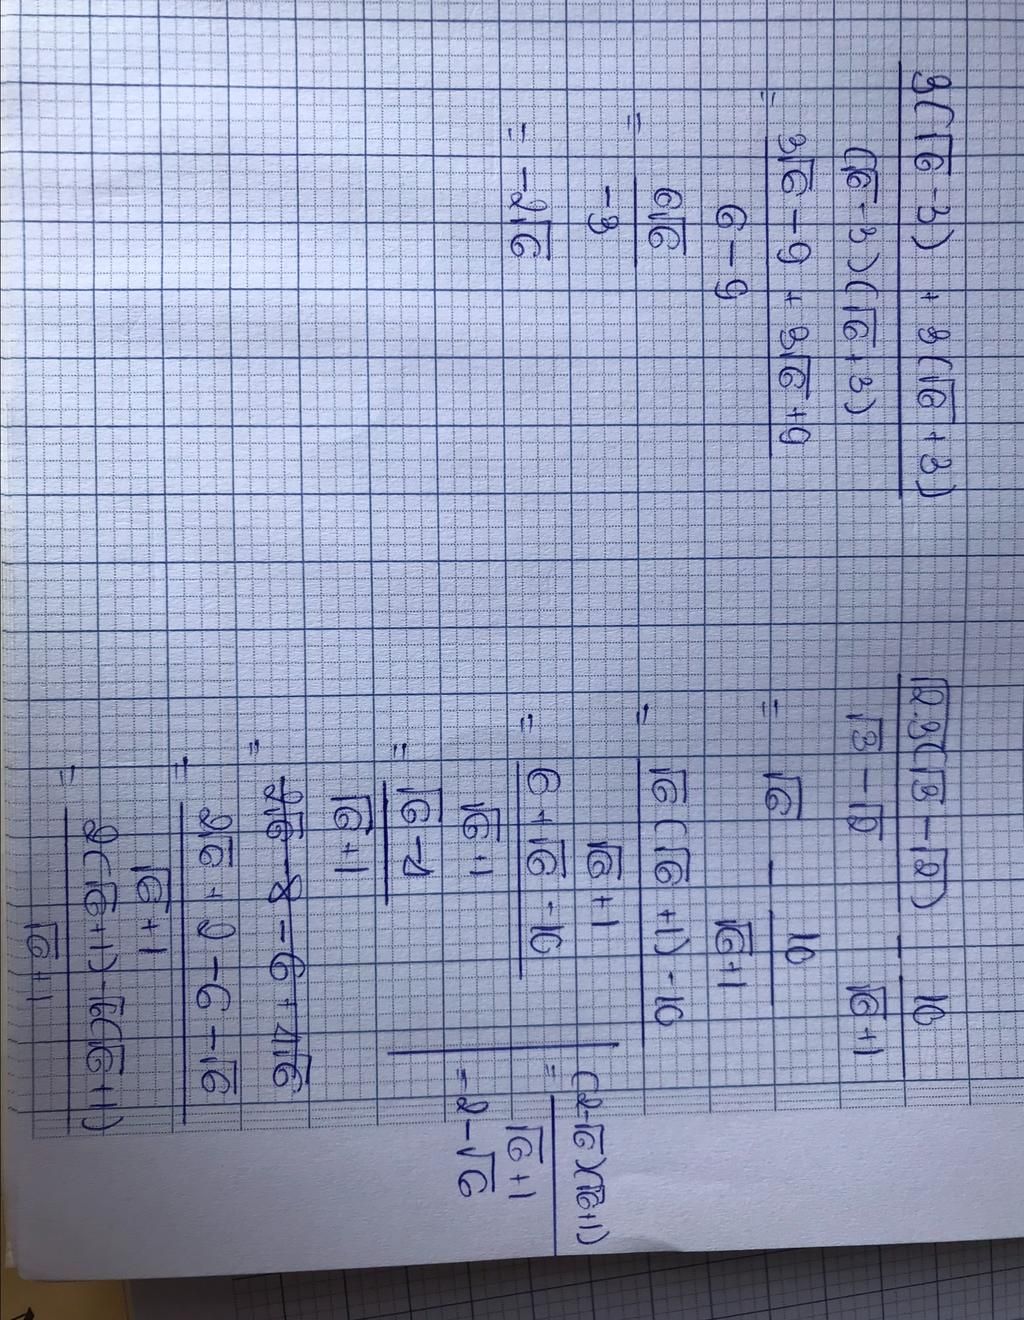 3(√6 - 3) + 3(√6 + 3)
(√6 - 3)(√6 + 3)
= 3√6 - 9 + 3√6 + 9
6 - 9
= 6√6
-3
= -2√6
√2.3(√3 - √2) - 10
√3 - √2 √6 + 1
= √6 - 10
√6 + 1
= √6(√6 + 1) - 10
√6 + 1
= 6 + √6 - 10
√6 + 1
= √6 - 4
√6 + 1
= 2√6 - 8 - 6 + 4√6
= 2√6 + 2 - 6 - √6
√6 + 1
= 2(√6 + 1) - √6(√6 + 1)
√6 + 1
= (2 - √6)(√6 + 1)
√6 + 1
= 2 - √6